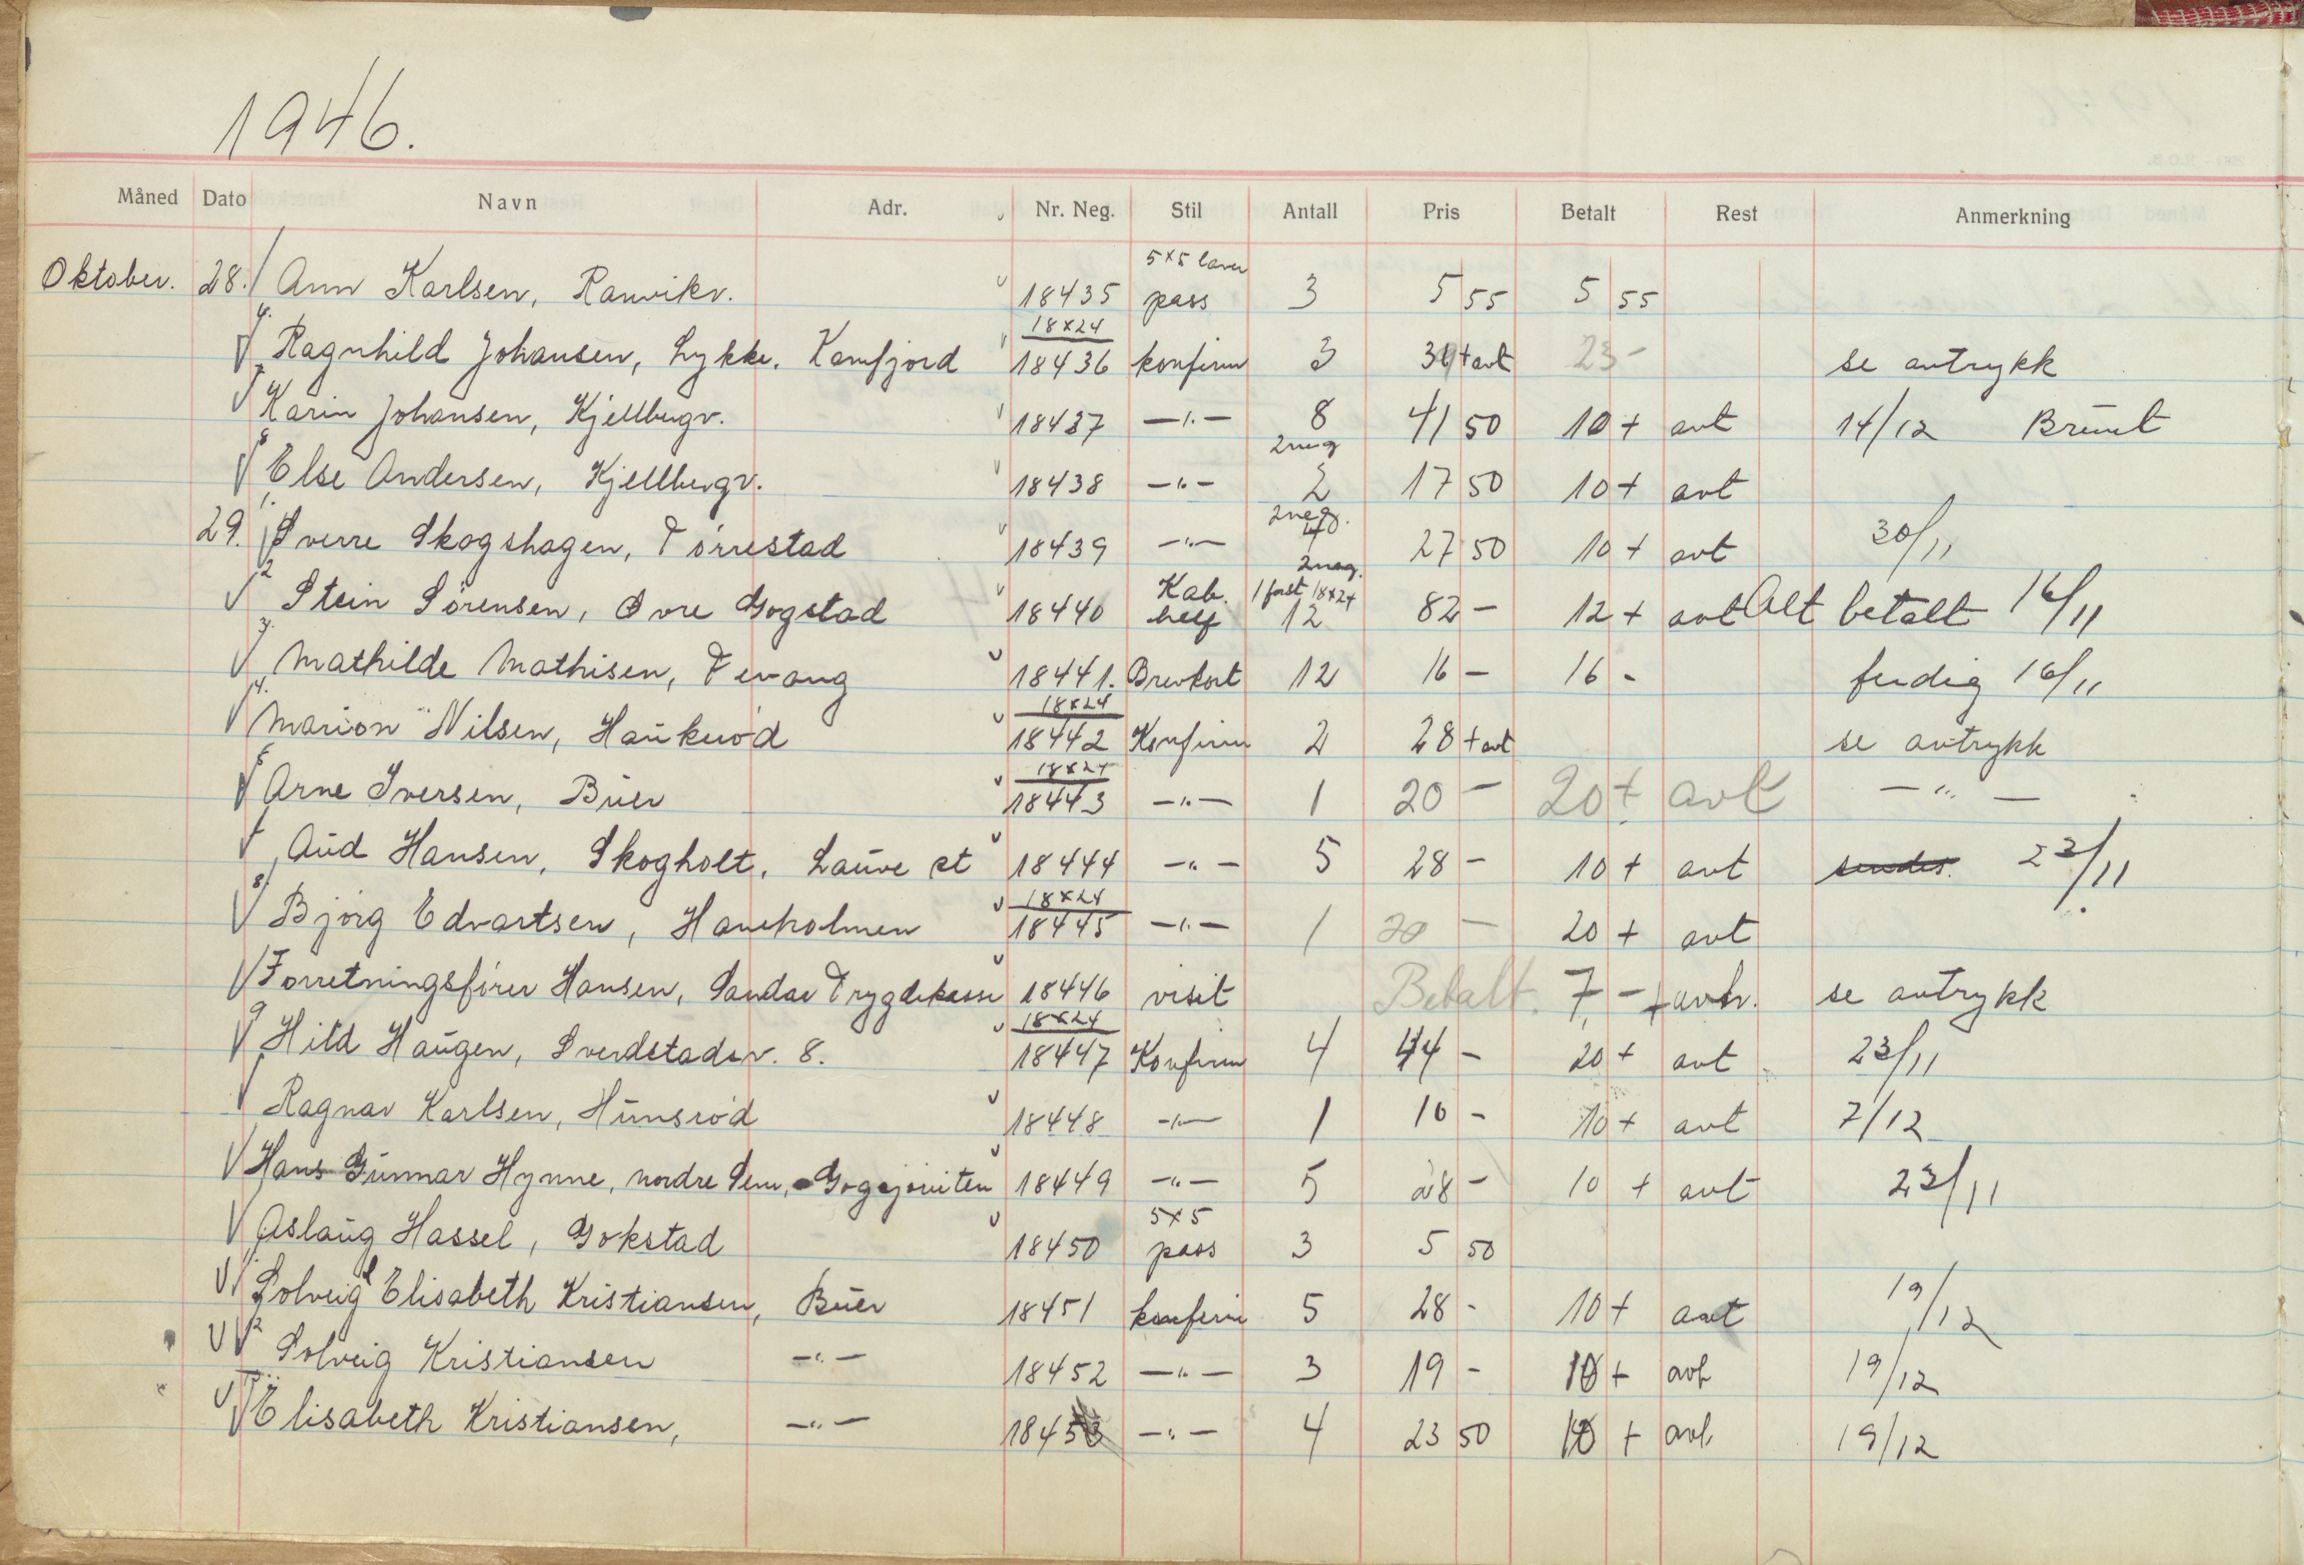 1946.
Måned Dato Navn Adr. Nr. Neg. Stil Antall Pris Betalt Rest Anmerkning
Oktober. 28. Ann Karlsen, Ranvikv. 18435 5x5 pass 3 5 55 5 55
4. Ragnhild Johansen, Lykke. Kamfjord 18x24 18436 konfirm 3 + avt 23 - se avtrykk
Karin Johansen, Kjellbergv. 18437 —"— 8 41 50 10 + avt 14/12 Brunt
Else Andersen, Kjellbergv. 18438 —"— 2 neg 2 17 50 10 + avt
29. 1. Sverre Skogshagen, Tørrestad 18439 —"— 2 neg. 27 50 10 + avt 30/11
2 Stein Sørensen, Øvre Gogstad 18440 Kab. helf 2 neg. 1 fort 18x24 12 82 - 12 + avt Alt betalt 16/11
3. Mathilde Mathisen, Tevang 18441. Brevkort 12 16 - 16 - ferdig 16/11
4. Marion Nilsen, Haukerød 18x24 18442 Konfirm 2 28 + avt se avtrykk
Arne Iversen, Buer 18x24 18443 —"— 1 20 - 20 + avt —"—
Aud Hansen, Skogholt, Lauve st 18444 —"— 5 28 - 10 + avt sendes. 23/11
8 Bjørg Edvartsen, Haneholmen 18x24 18445 —"— 1 20 - 20 + avt
Forretningsfører Hansen, Sandar Trygdekasse 18446 visit Betalt. 7 - + avtr. se avtrykk
9 Hild Haugen, Sverdstadsv. 8. 18x24 18447 Konfirm 4 44 - 20 + avt 23/11
Ragnar Karlsen, Hunsrød 18448 —"— 1 10 - 10 + avt 7/12
Hans Gunnar Hynne, nordre Sem, 18449 —"— 5 28 - 10 + avt 23/11
Aslaug Hassel, Gokstad 18450 5x5 pass 3 5 50
Solveig & Elisabeth Kristiansen, Buer 18451 konfirm 5 28 - 10 + avt 19/12
2 Solveig Kristiansen —"— 18452 —"— 3 19 - 10 + avt 19/12
Elisabeth Kristiansen, —"— 18453 —"— 4 23 50 10 + avt 19/12